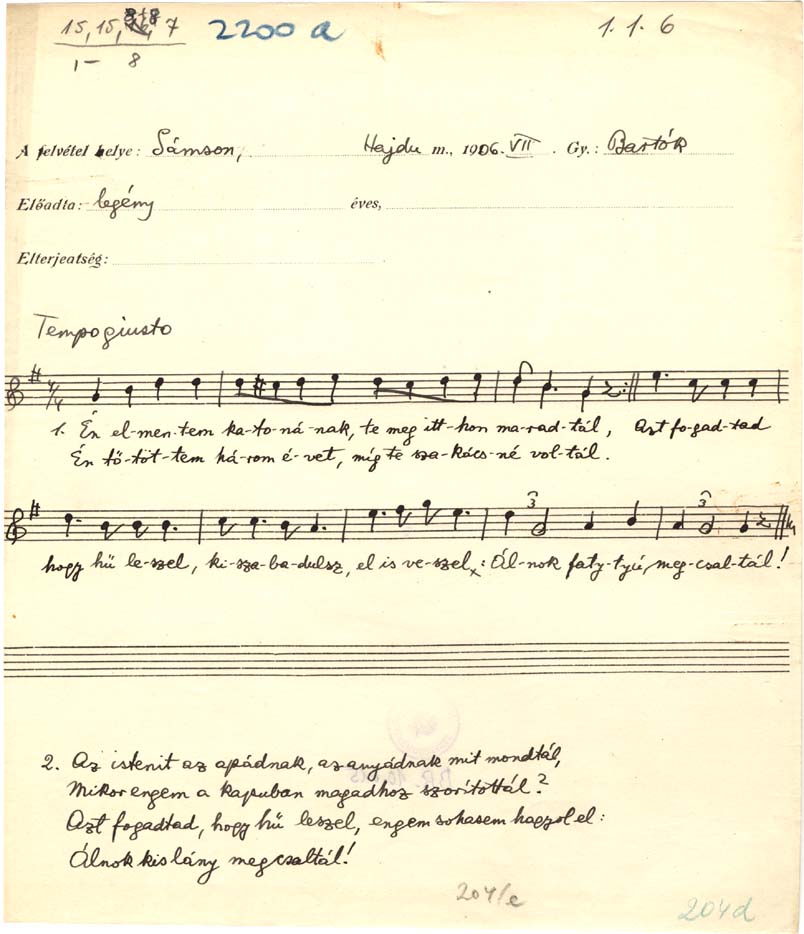 15, 15, 8+8, 7 2200 a 1. 1. 6
1– 8
A felvétel helye: Sámson, Hajdu m., 1906. VII. Gy.: Bartók
Előadta: legény éves,
Elterjeatség:
Tempo giusto
4/4
1. Én el-men-tem ka-to-ná-nak, te meg itt-hon ma-rad-tál, Azt fo-gad-tad
Én tö-töt-tem há-rom é-vet, míg te sza-kács-né vol-tál.
3 3
hogy hű le-szel, ki-sza-ba-dulsz, el is ve-szel x: Ál-nok faty-tyú, meg-csal-tál!
2. Az istenit az apádnak, az anyádnak mit mondtál,
Mikor engem a kapuban magadhoz szorítottál?
Azt fogadtad, hogy hű leszel, engem sohasem hagyol el:
Álnok kislány megcsaltál!
204/e 204d